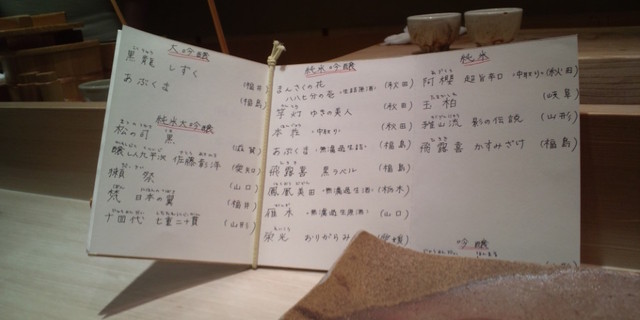 大吟醸
黒龍 しずく (福井)
あぶくま (福島)
純米大吟醸
松の司 黒 (滋賀)
醸し人九平次 佐藤彰洋 (愛知)
獺祭 (山口)
梵 日本の翼 (福井)
十四代 七垂二十貫 (山形)
純米吟醸
まんさくの花
八八七分の壱 ・生詰原(酒) (秋田)
竿灯 ゆきの美人 (秋田)
・中取り (秋田)
あぶくま ・無濾過生(酒) (福島)
飛露喜 黒ラベル (福島)
鳳凰美田 ・無濾過生(酒) (栃木)
雁木 ・無濾過生原(酒) (山口)
栄光 おりがらみ (愛媛)
純米
阿櫻 超旨辛口 ・中取り (秋田)
玉柏 (岐阜)
雅山流 影の伝説 (山形)
飛露喜 かすみざけ (福島)
吟醸